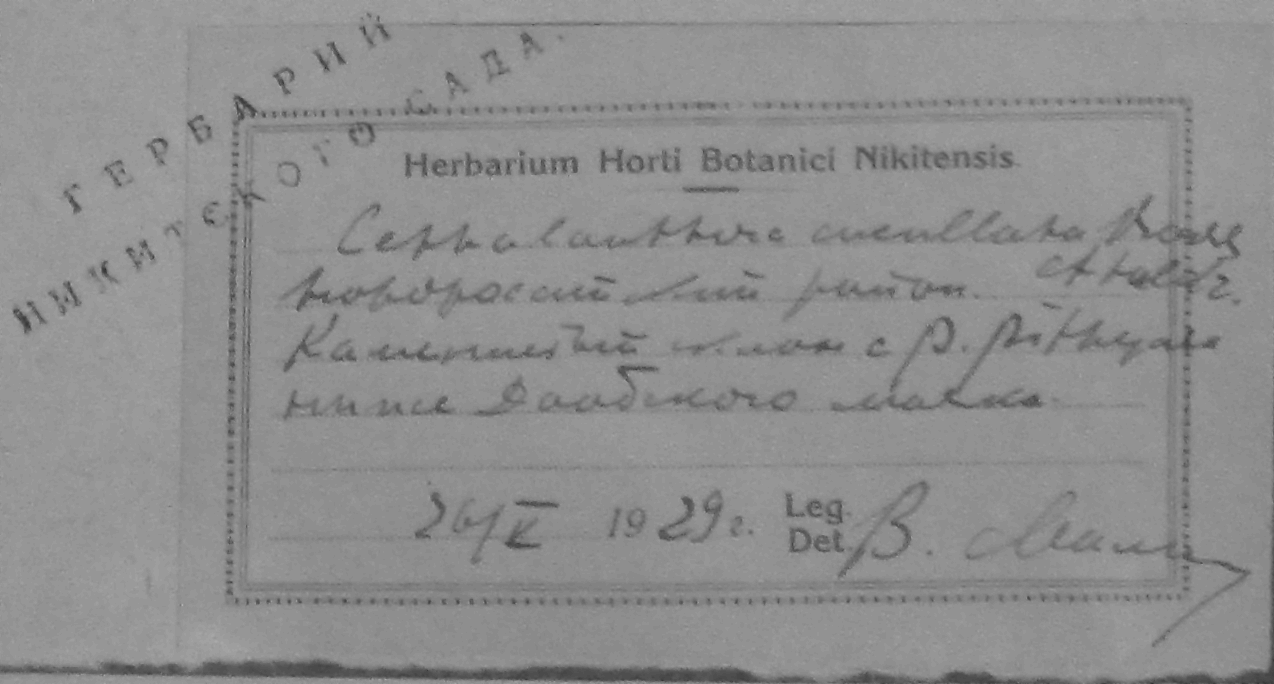 ГЕРБАРИЙ
НИКИТСКОГО САДА.
Herbarium Horti Botanici Nikitensis.
Cephalanthera cucullata Boiss
et Heldr.
Новороссийский район.
Каменистый склон с P. pithyusa
ниже Дообского маяка.
26/V 1929 г. Leg.
Det. В.